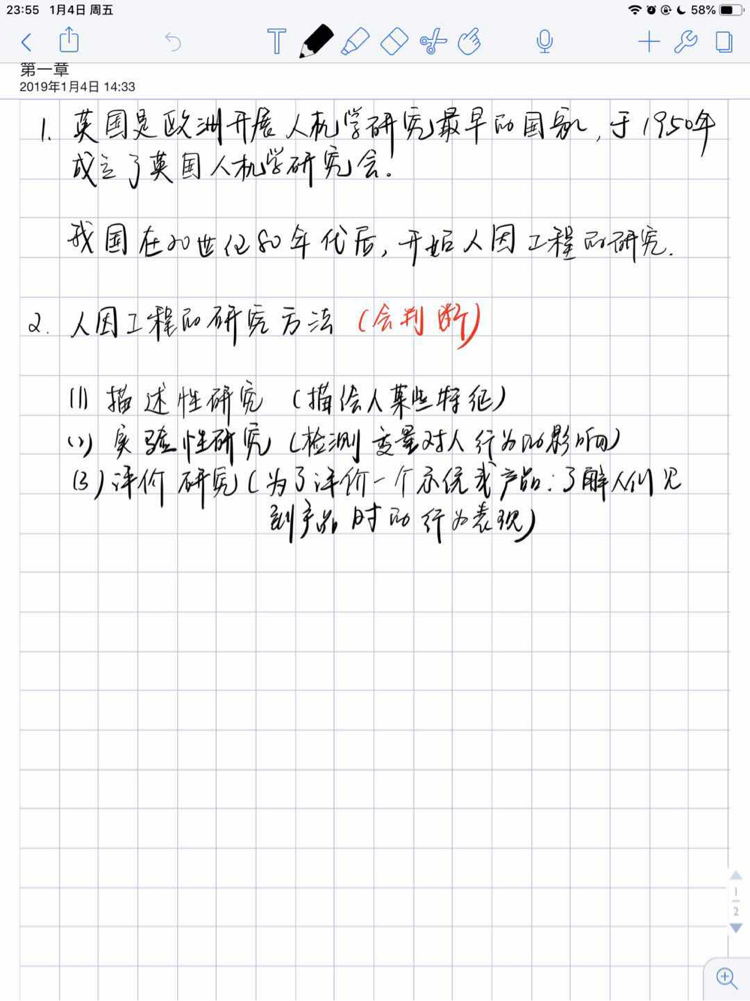 23:55 1月4日 周五 58%
T
第一章
2019年1月4日 14:33
1. 英国是欧洲开展人机学研究最早的国家,于1950年
成立了英国人机学研究会.
我国在20世纪80年代后,开始人因工程的研究.
2. 人因工程的研究方法 (会判断)
(1) 描述性研究 (描绘人某些特征)
(2) 实验性研究 (检测变量对人行为的影响)
(3) 评价研究 (为了评价一个系统或产品:了解人们见
到产品时的行为表现)
1
2